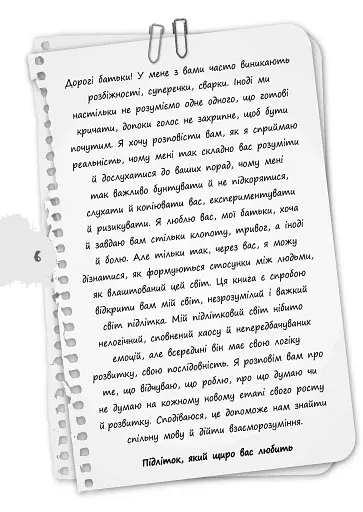 Дорогі батьки! У мене з вами часто виникають
розбіжності, суперечки, сварки. Іноді ми
настільки не розуміємо одне одного, що готові
кричати, допоки голос не захрипне, щоб бути
почутим. Я хочу розповісти вам, як я сприймаю
реальність, чому мені так складно вас розуміти
й дослухатися до ваших порад, чому мені
так важливо бунтувати й не підкорятися,
слухати й копіювати вас, експериментувати
й ризикувати. Я люблю вас, мої батьки, хоча
й завдаю вам стільки клопоту, тривог, а іноді
й болю. Але тільки так, через вас, я можу
дізнатися, як формуються стосунки між людьми,
як влаштований цей світ. Ця книга є спробою
відкрити вам мій світ, незрозумілий і важкий
світ підлітка. Мій підлітковий світ нібито
нелогічний, сповнений хаосу й непередбачуваних
емоцій, але всередині він має свою логіку
розвитку, свою послідовність. Я розповім вам про
те, що відчуваю, що роблю, про що думаю чи
не думаю на кожному новому етапі свого росту
й розвитку. Сподіваюся, це допоможе нам знайти
спільну мову й дійти взаєморозуміння.
Підліток, який щиро вас любить
6